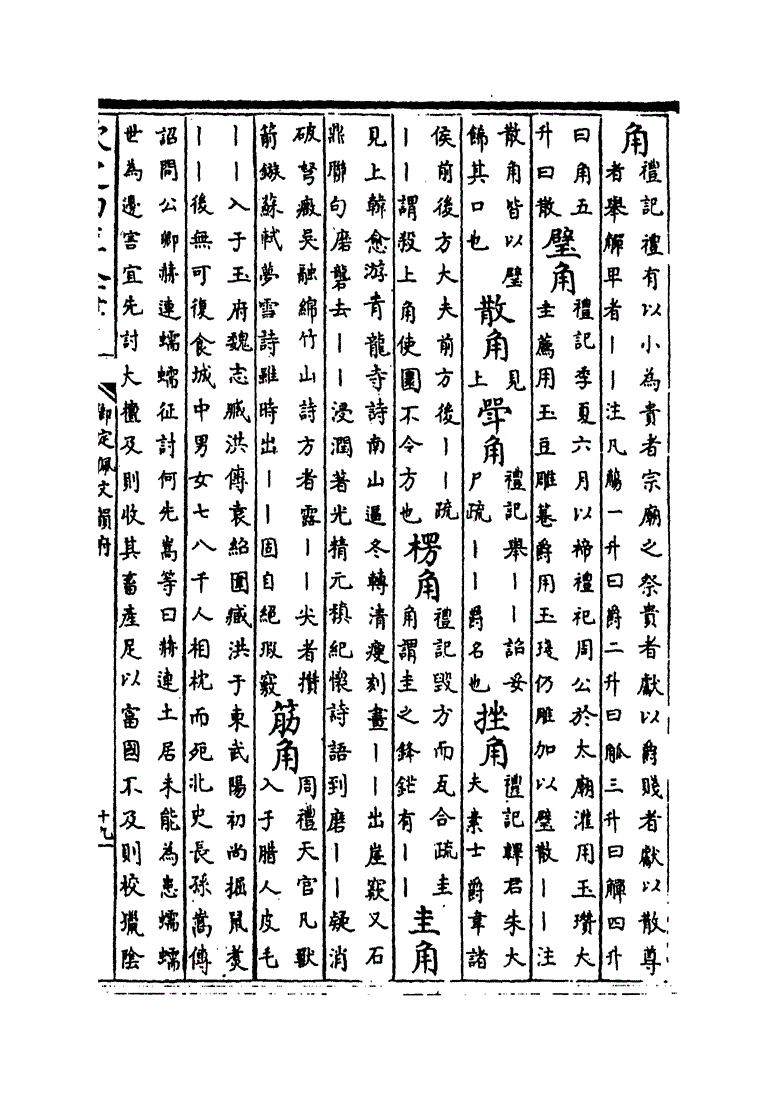 角
禮記禮有以小為貴者宗廟之祭貴者獻以爵賤者獻以散尊
者舉觶卑者丨丨注凡觴一升曰爵二升曰觚三升曰觶四升
曰角五
升曰散
璧角
禮記季夏六月以禘禮祀周公於太廟灌用玉瓚大
圭薦用玉豆雕篹爵用玉琖仍雕加以璧散丨丨注
散角皆以璧
飾其口也
散角
見
上
斝角
禮記舉丨丨詔妥
尸疏丨丨爵名也
挫角
禮記韠君朱大
夫素士爵韋諸
侯前後方大夫前方後丨丨疏
丨丨謂殺上角使圜不令方也
楞角
禮記毁方而瓦合疏圭
角謂圭之鋒鋩有丨丨
圭角
見上韓愈游青龍寺詩南山逼冬轉清瘦刻畫丨丨出崖窾又石
鼎聯句磨礱去丨丨浸潤著光精元稹紀懷詩語到磨丨丨疑消
破弩癥吳融綿竹山詩方者露丨丨尖者攢
箭鏃蘇軾夢雪詩雖時出丨丨固自絕瑕竅
筋角
周禮天官凡獸
入于腊人皮毛
丨丨入于玉府魏志臧洪傳袁紹圍臧洪于東武陽初尚掘鼠煑
丨丨後無可復食城中男女七八千人相枕而死北史長孫嵩傳
詔問公卿赫連蠕蠕征討何先嵩等曰赫連土居未能為患蠕蠕
世為邊害宜先討大檀及則收其畜產足以富國不及則校獵陰
御定佩文韻府
十九